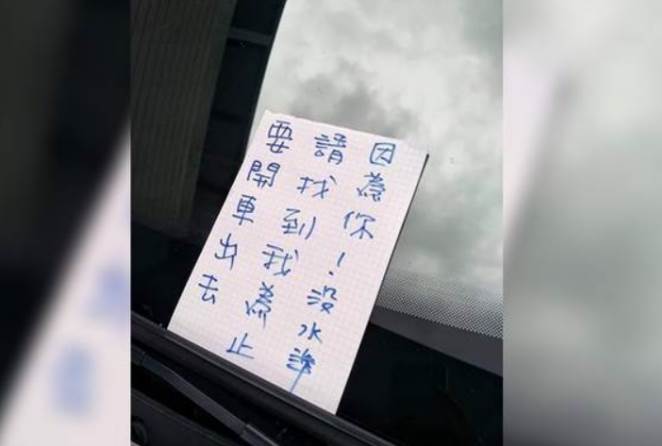 要開車出去
請找到我為止
因為你！没水準